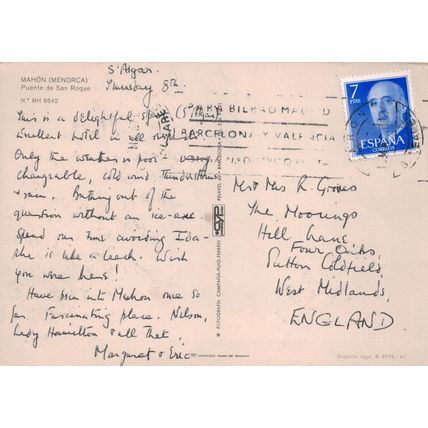 MAHÓN (MENORCA)
Puente de San Roque
N.º MH 8642
S'Algar.
Thursday 8th.
This is a delightful spot (S'Algar)
Excellent hotel in all respects
Only the weather is poor - very
changeable, cold wind, thunderstorms
& rain. Bathing out of the
question without an ice-axe.
Spend our time avoiding Ida -
she is like a leech. Wish
you were here!
Have been into Mahon once so
far. Fascinating place. Nelson,
Lady Hamilton & all that.
Margaret & Eric
FOTOGRAFIA CAMPAÑA-PUIG-FERRÁN
7
PTAS
ESPAÑA
CORREOS
BILBAO MADRID
BARCELONA Y VALENCIA
Mr & Mrs R. Groves
The Moorings
Hill Lane,
Four Oaks,
Sutton Coldfield,
West Midlands,
ENGLAND.
Depósito legal B.